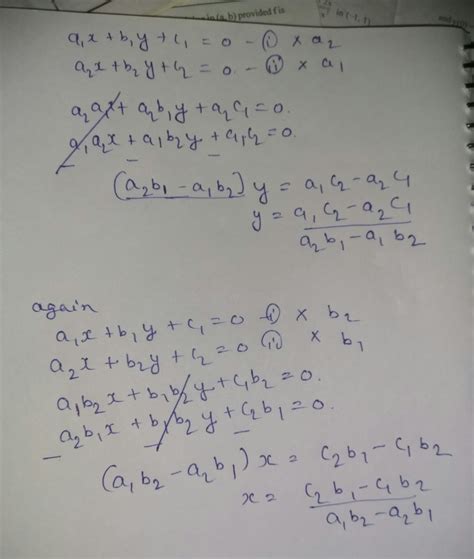 in (a, b) provided f is
in (-1, 1)
a₁x + b₁y + c₁ = 0 - ⓘ × a₂
a₂x + b₂y + c₂ = 0 - ⓘⓘ × a₁
a₂a₁x + a₂b₁y + a₂c₁ = 0.
a₁a₂x + a₁b₂y + a₁c₂ = 0.
- - -
(a₂b₁ - a₁b₂) y = a₁c₂ - a₂c₁
y = a₁c₂ - a₂c₁
a₂b₁ - a₁b₂
again
a₁x + b₁y + c₁ = 0 - ⓘ × b₂
a₂x + b₂y + c₂ = 0 ⓘⓘ × b₁
a₁b₂x + b₁b₂y + c₁b₂ = 0.
a₂b₁x + b₁b₂y + c₂b₁ = 0.
- - -
(a₁b₂ - a₂b₁) x = c₂b₁ - c₁b₂
x = c₂b₁ - c₁b₂
a₁b₂ - a₂b₁